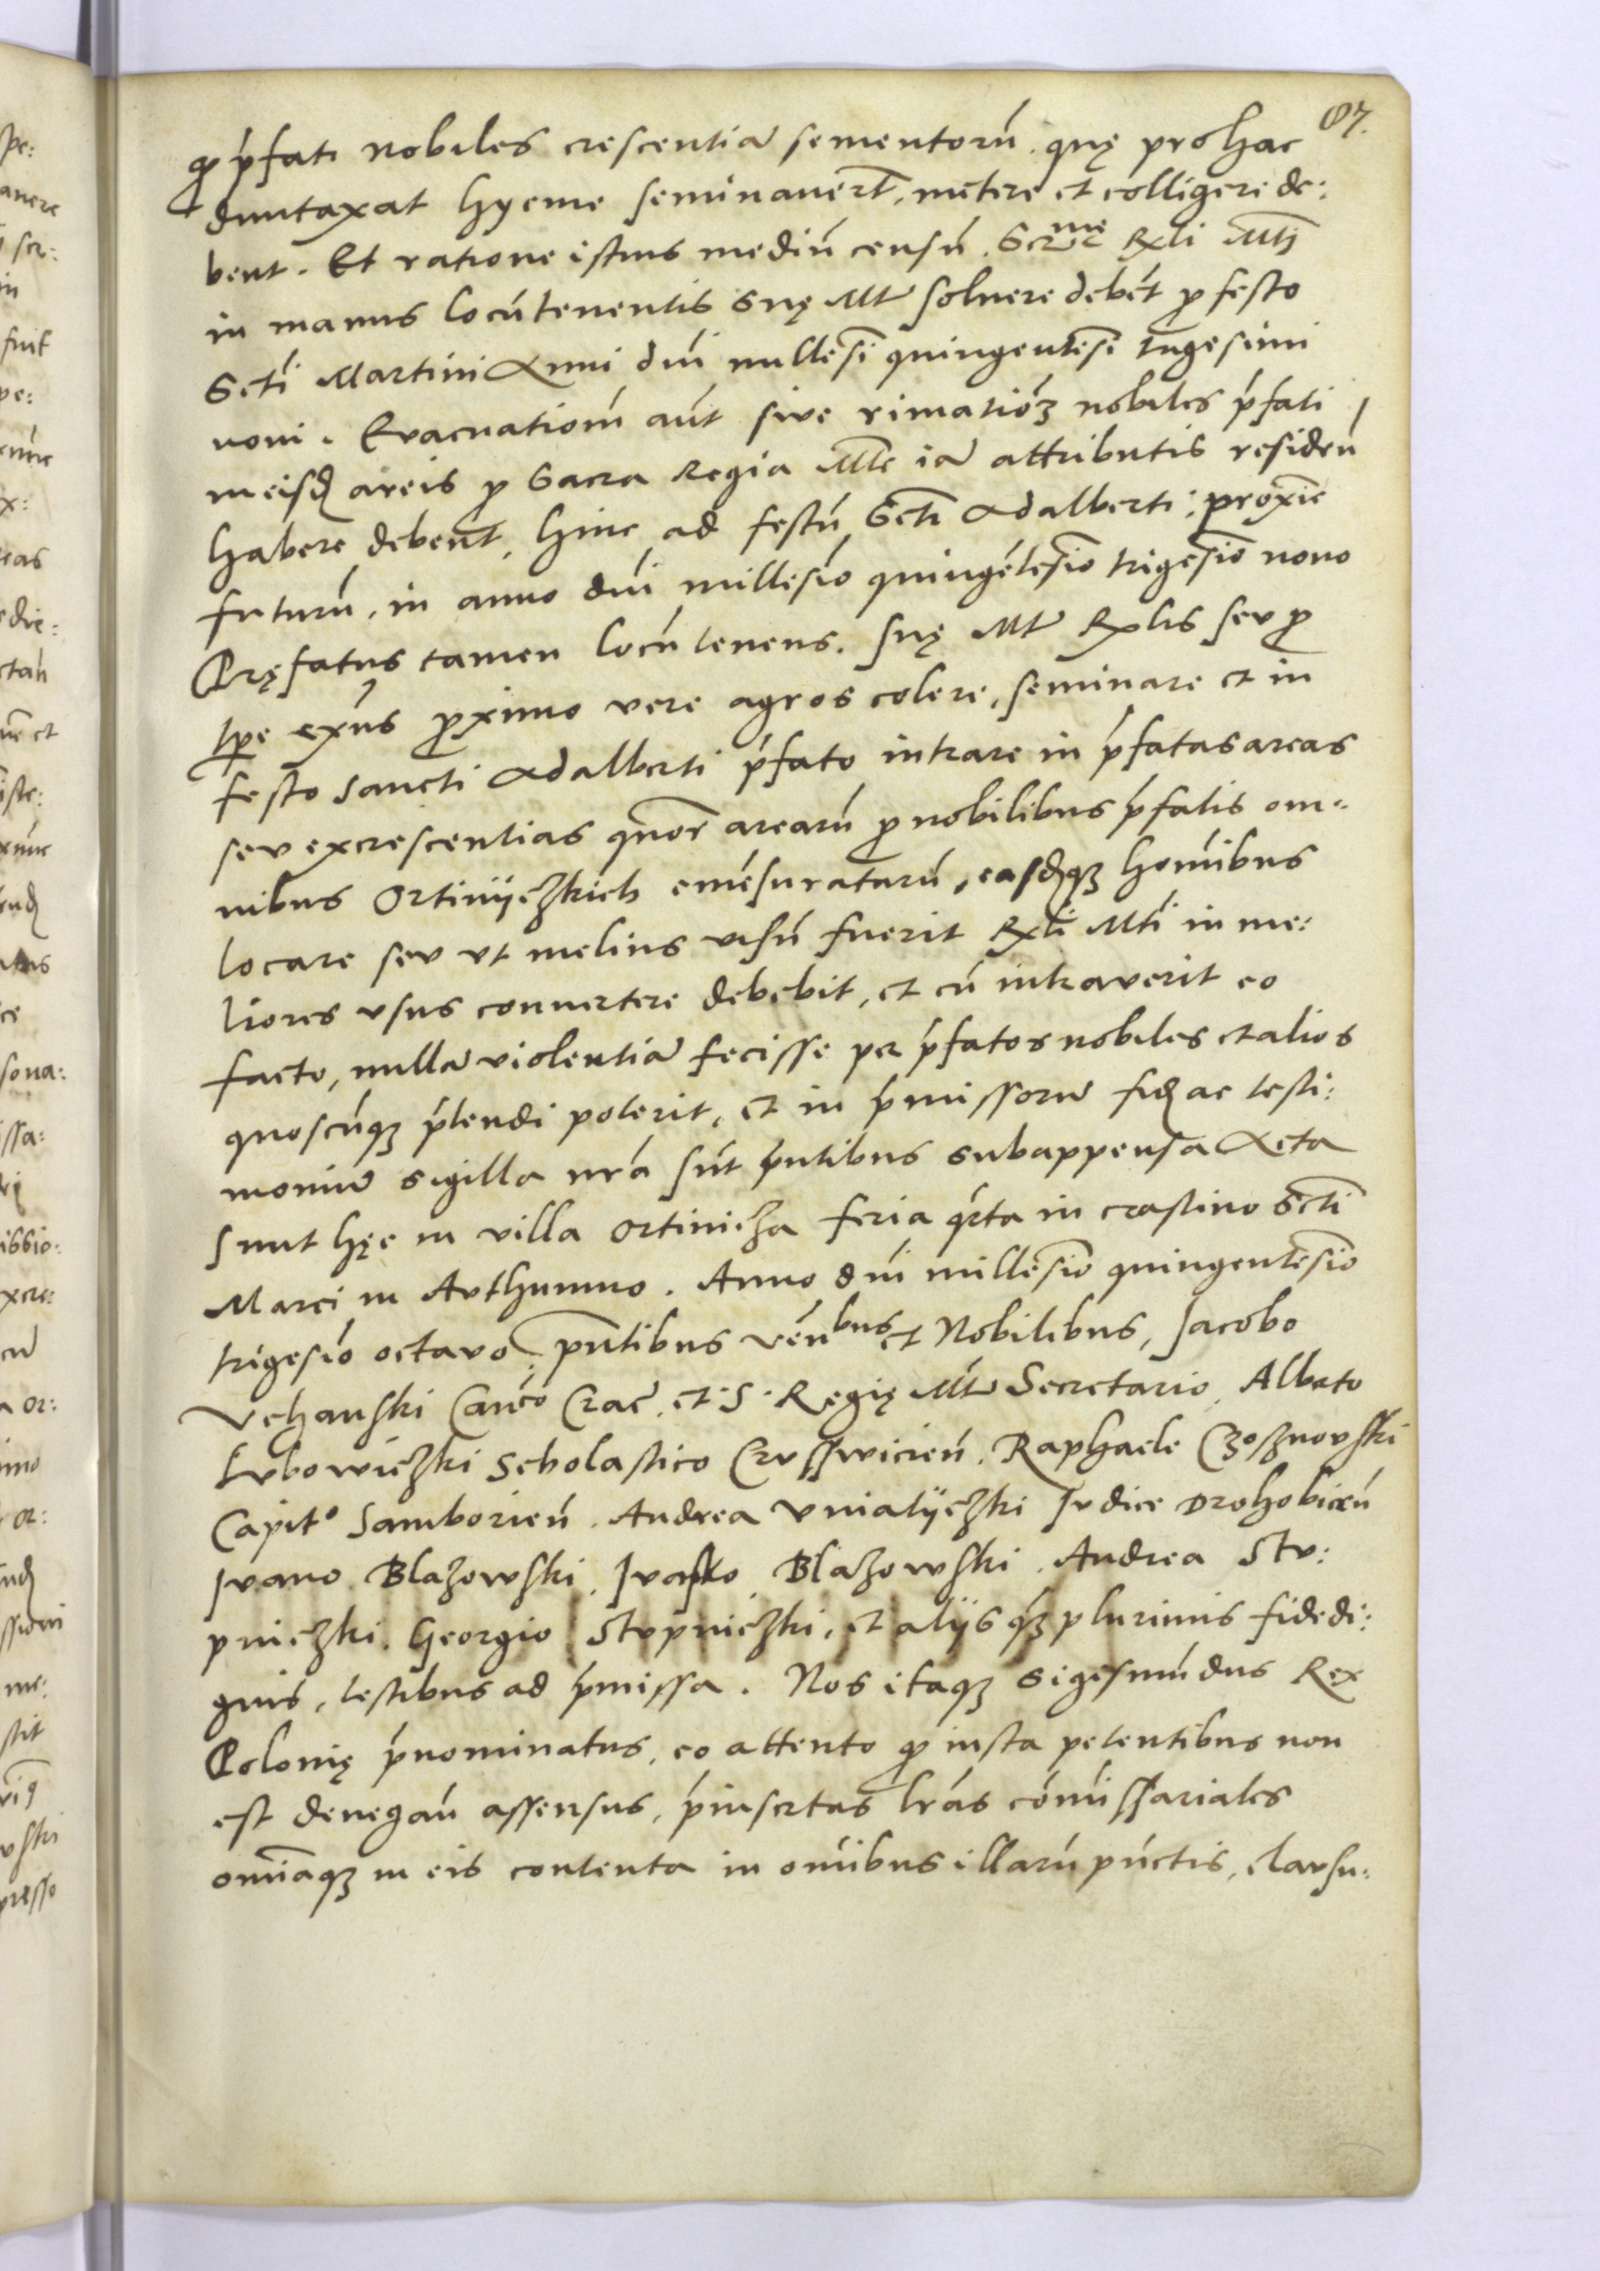 87.
ꝙ p̄fati nobiles crescentiā sementorū. quę pro hac
duntaxat hyeme seminauerūt, metere et colligere de:
bent. Et ratione istius mediū censū. Serᵐᵉ Rxli Mti
in manus locūtenentis suę Mtis soluere debēt ꝓ festo
Scti Martini Anni dni millesi quingentesi trigesimi
noni. Evacuationū aūt sive rimationē nobiles p̄fati
in eisd areis ꝓ Sacra Regia Mte iā attributis residen̄
habere debent, hinc ad festū Scti Adalberti: proxīe
futurū, in anno dni millesio quingētesio trigesio nono
Pręfatus tamen locūtenens. suę Mtis Rxlis seu ꝓ
tpe exn̄s ꝓximo vere agros colere, seminare et in
festo sancti Adalberti p̄fato intrare in p̄fatas areas
seu excrescentias quor arearū ꝓ nobilibus p̄fatis om:
nibus Ortinijczkich emēsuratarū, easdqꝫ hoīnibus
locare seu vt melius visū fuerit Rxli Mti in me:
liores vsus conuertere debebit, et cū intrauerit eo
facto, nullā violentiā fecisse per p̄fatos nobiles et alios
quoscūqꝫ p̄tendi poterit, et in p̄missorum fid ac testi:
monium sigilla nrā sūt p̄ntibus subappensa Acta
sunt hęc in villa Ortinicza feria q̄rta in crastino Scti
Marci in Authumno. Anno dni millesio quingentesio
trigesio octavo. p̄ntibus vēnᵇᵘˢ et Nobilibus, Jacobo
Vchanski Canco Crac. et. S. Regię Mtis Secretario, Alberto
Lubowiczki Scholastico Crusswicien̄. Raphaele Czosznowski
Capitº Samborien̄. Andrea Vniatijczki Judice Drohobicen̄
Ivano Blazowski, Ivasko Blazowski. Andrea Stu:
pniczki. Georgio Stupniczki, et alijs qꝫ plurimis fide di:
gnis, testibus ad p̄missa. Nos itaqꝫ Sigismūdus Rex
Polonię p̄nominatus, eo attento ꝙ iusta petentibus non
est denegan̄ assensus, p̄insertas lrās cōmissariales
omīaqꝫ in eis contenta in omībus illarū pūctis, clausu: